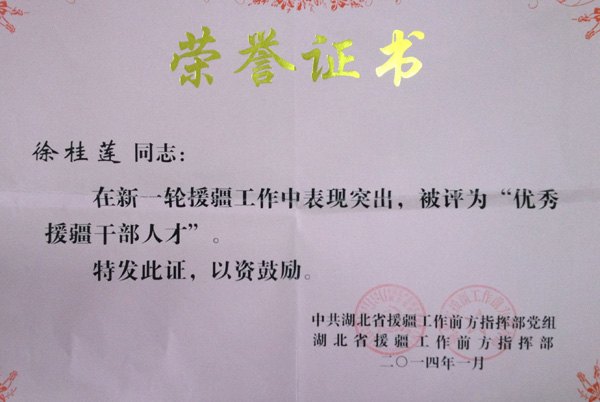 荣誉证书
徐桂莲 同志：
在新一轮援疆工作中表现突出，被评为“优秀
援疆干部人才”。
特发此证，以资鼓励。
中共湖北省援疆工作前方指挥部党组
湖北省援疆工作前方指挥部
二〇一四年一月